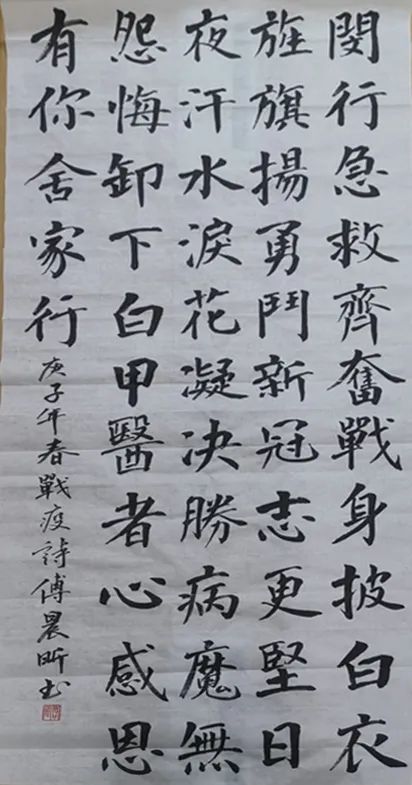 閔行急救齊奮戰身披白衣
旌旗揚勇鬥新冠志更堅日
夜汗水淚花凝决勝病魔無
怨悔卸下白甲醫者心感恩
有你舍家行
庚子年春戰疫詩傅晨昕书